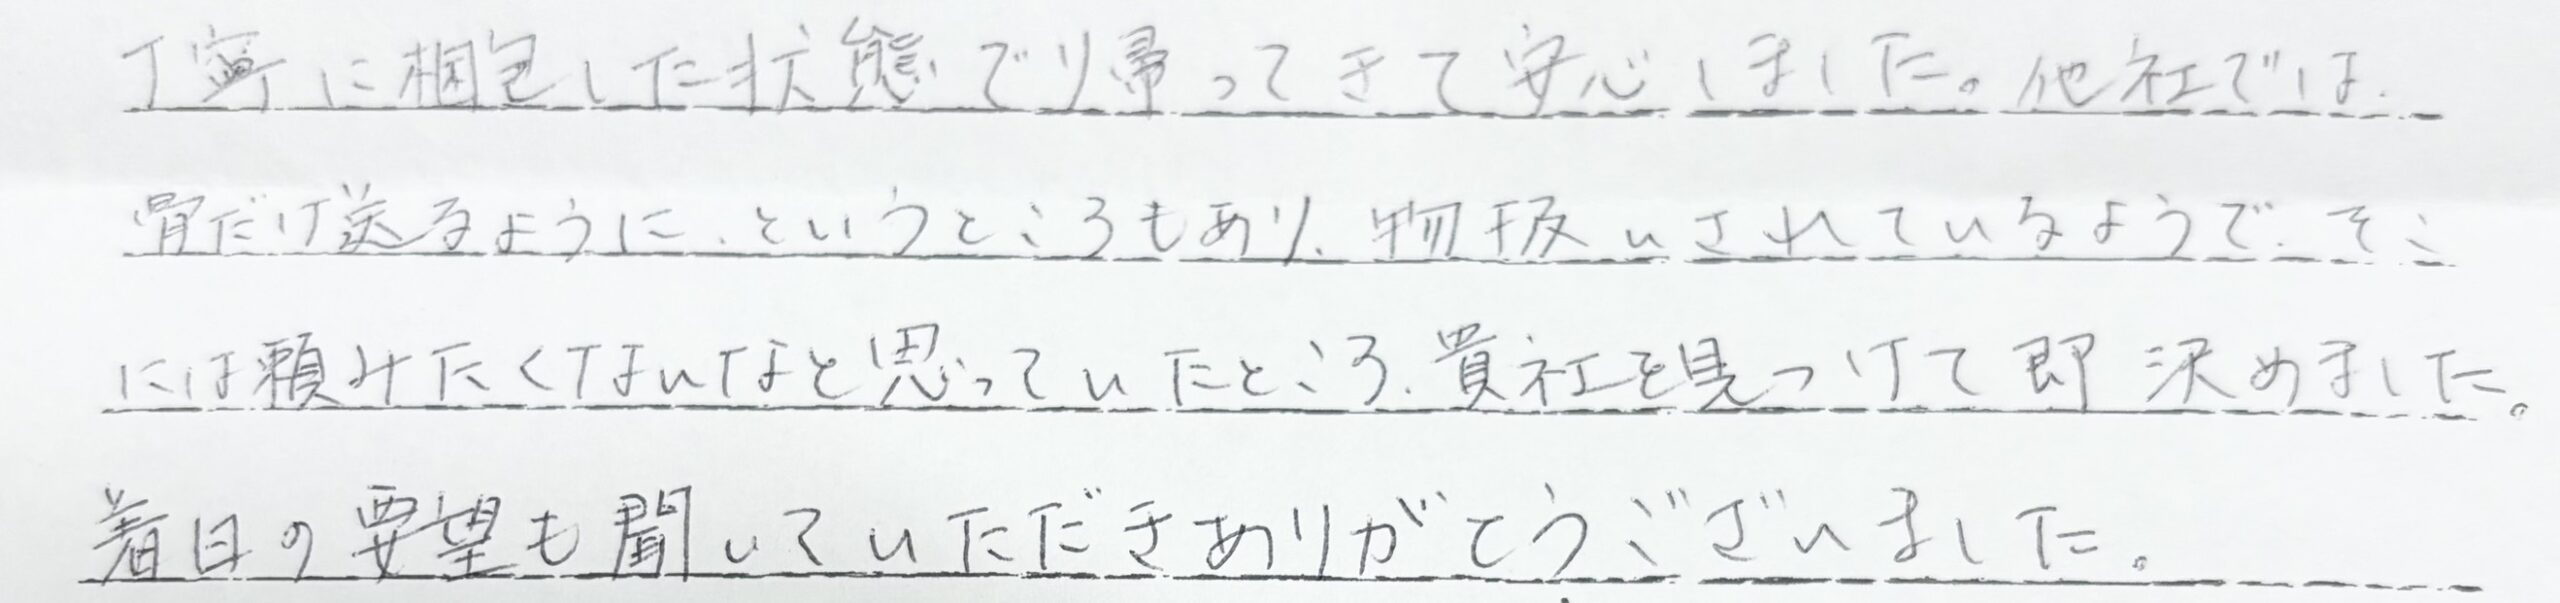 丁寧に梱包した状態で帰ってきて安心しました。他社では、
骨だけ送るように、というところもあり、物扱いされているようで、そこ
には頼みたくないなと思っていたところ、貴社を見つけて即決めました。
着日の要望も聞いていただきありがとうございました。